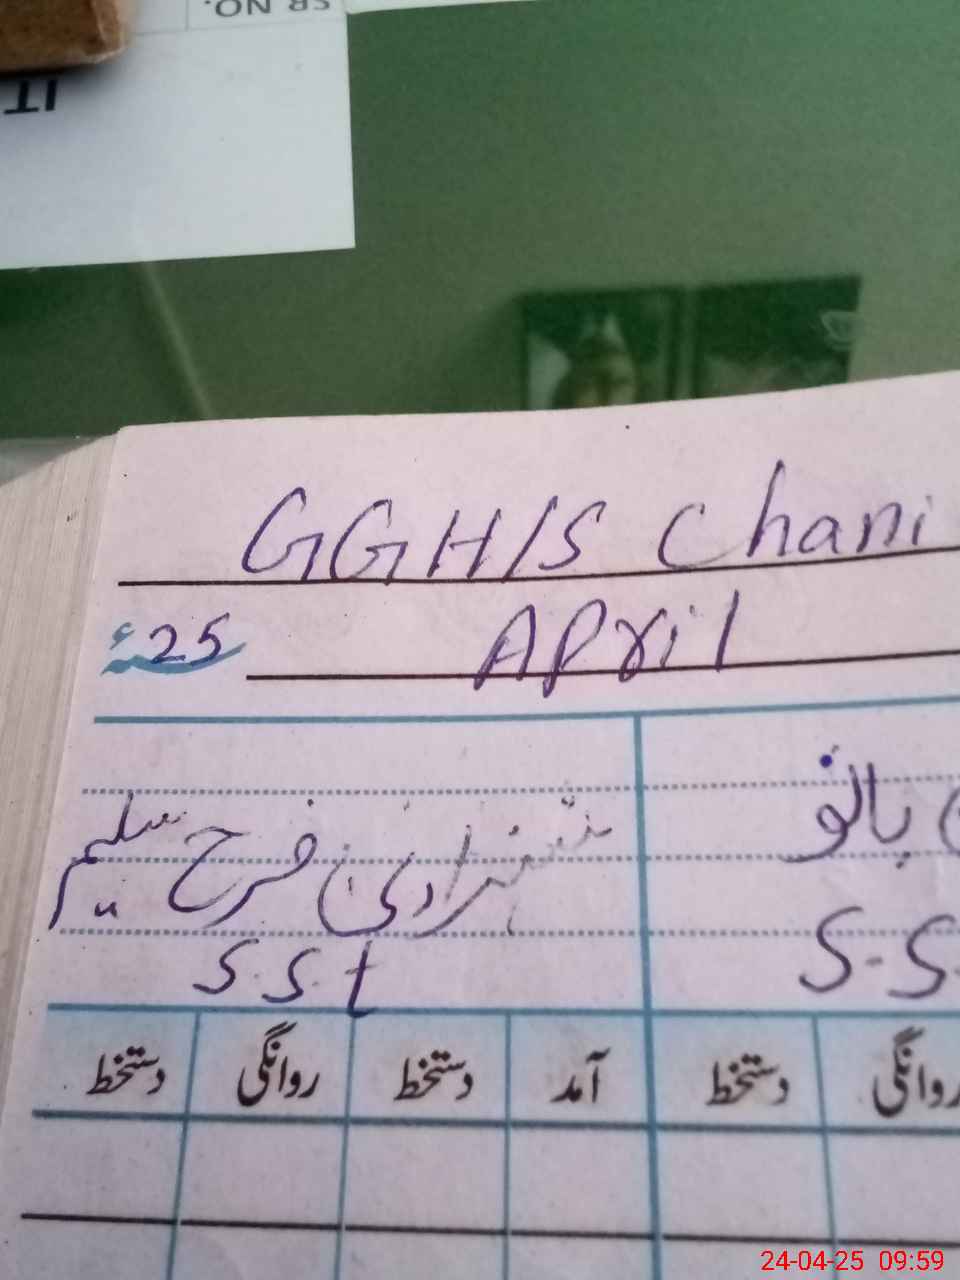 SR NO.
IT
GGH/S Chani
25ء April
بانو
شہزادی فرح سلیم
S.S
S.S.t
روانگی دستخط آمد دستخط روانگی دستخط
24-04-25 09:59